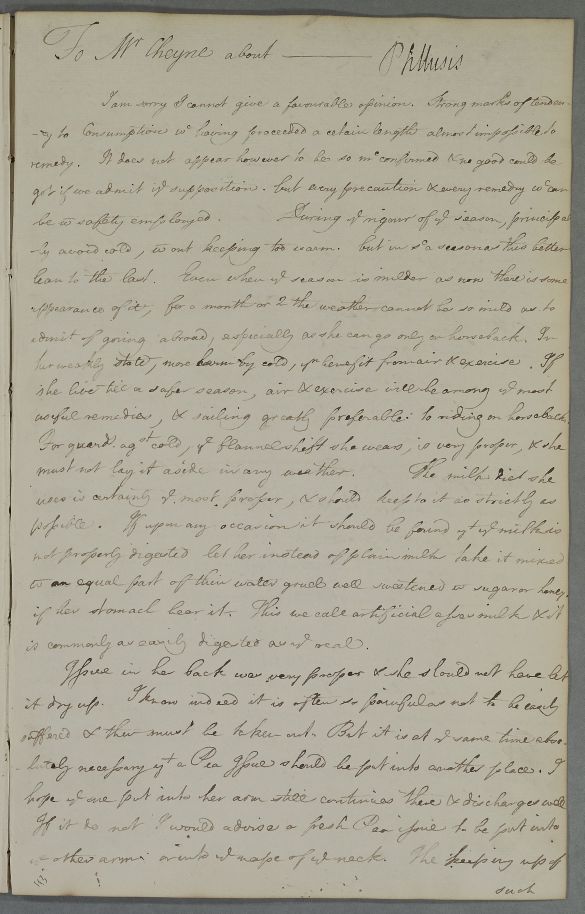 To Mr Cheyne about ——— Phthisis
I am sorry I cannot give a favourable opinion. Strong marks of tenden-
-cy to Consumption wc having proceeded a certain length almost impossible to
remedy. It does not appear however to be so mc confirmed & no good could be
got if we admit it supposition. but any precaution & every remedy wc can
be w safety employed. During ye rigour of ye season, principal
ly avoid cold, w out keeping too warm. but in sa season as this better
lean to the last. Even when ye season is milder as now there is some
appearance of it, for a month or 2 the weather cannot be so mild as to
admit of going abroad, especially as she can go only on horseback. In
her weakly state, more harm by cold, yn benefit from air & exercise. If
she live till a safer season, air & exercise will be among ye most
useful remedies, & sailing greatly preferable to riding on horseback.
For guard agst cold, ye flannel shift she wears, is very proper, & she
must not lay it aside in any weather. The milk diet she
uses is certainly ye most proper, & should keep to it as strictly as
possible. If upon any occasion it should be found yt ye milk is
not properly digested let her instead of plain milk take it mixed
w an equal part of thin water gruel well sweetened w sugar or honey,
if her stomach bear it. This we call artificial asses milk & it
is commonly as easily digested as ye real.
Issue in her back was very proper & she should not have let
it dry up. I know indeed it is often so painful as not to be easily
suffered & then must be taken out. But it is at ye same time abso-
lutely necessary yt a Pea Issue should be put into another place. I
hope ye one put into her arm still continues there & discharges well
If it do not I would advise a fresh Pea issue to be put into
ye other arm or into ye nape of ye neck. The keeping up of
such